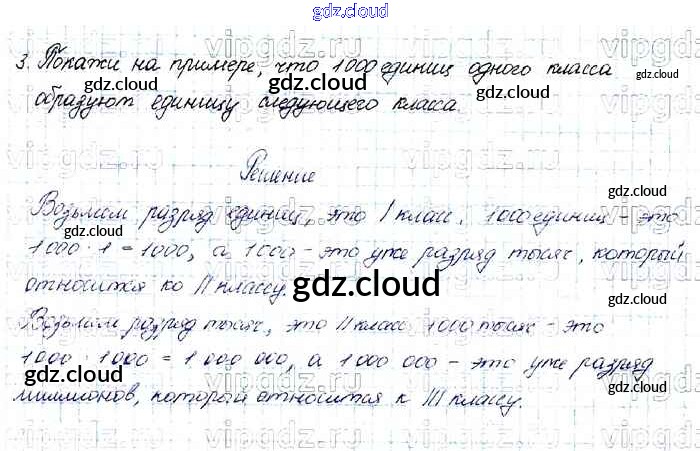 gdz.cloud
3. Покажи на примере, что 1000 единиц одного класса
образуют единицу следующего класса.
Решение
Возьмем разряд единиц, это I класс. 1000 единиц - это
1000 · 1 = 1000, а 1000 - это уже разряд тысяч, который
относится ко II классу.
Возьмем разряд тысяч, это II класс 1000 тысяч - это
1000 · 1000 = 1 000 000, а 1 000 000 - это уже разряд
миллионов, который относится к III классу.
gdz.cloud
gdz.cloud
gdz.cloud
gdz.cloud
gdz.cloud
gdz.cloud
gdz.cloud
gdz.cloud
gdz.cloud
gdz.cloud